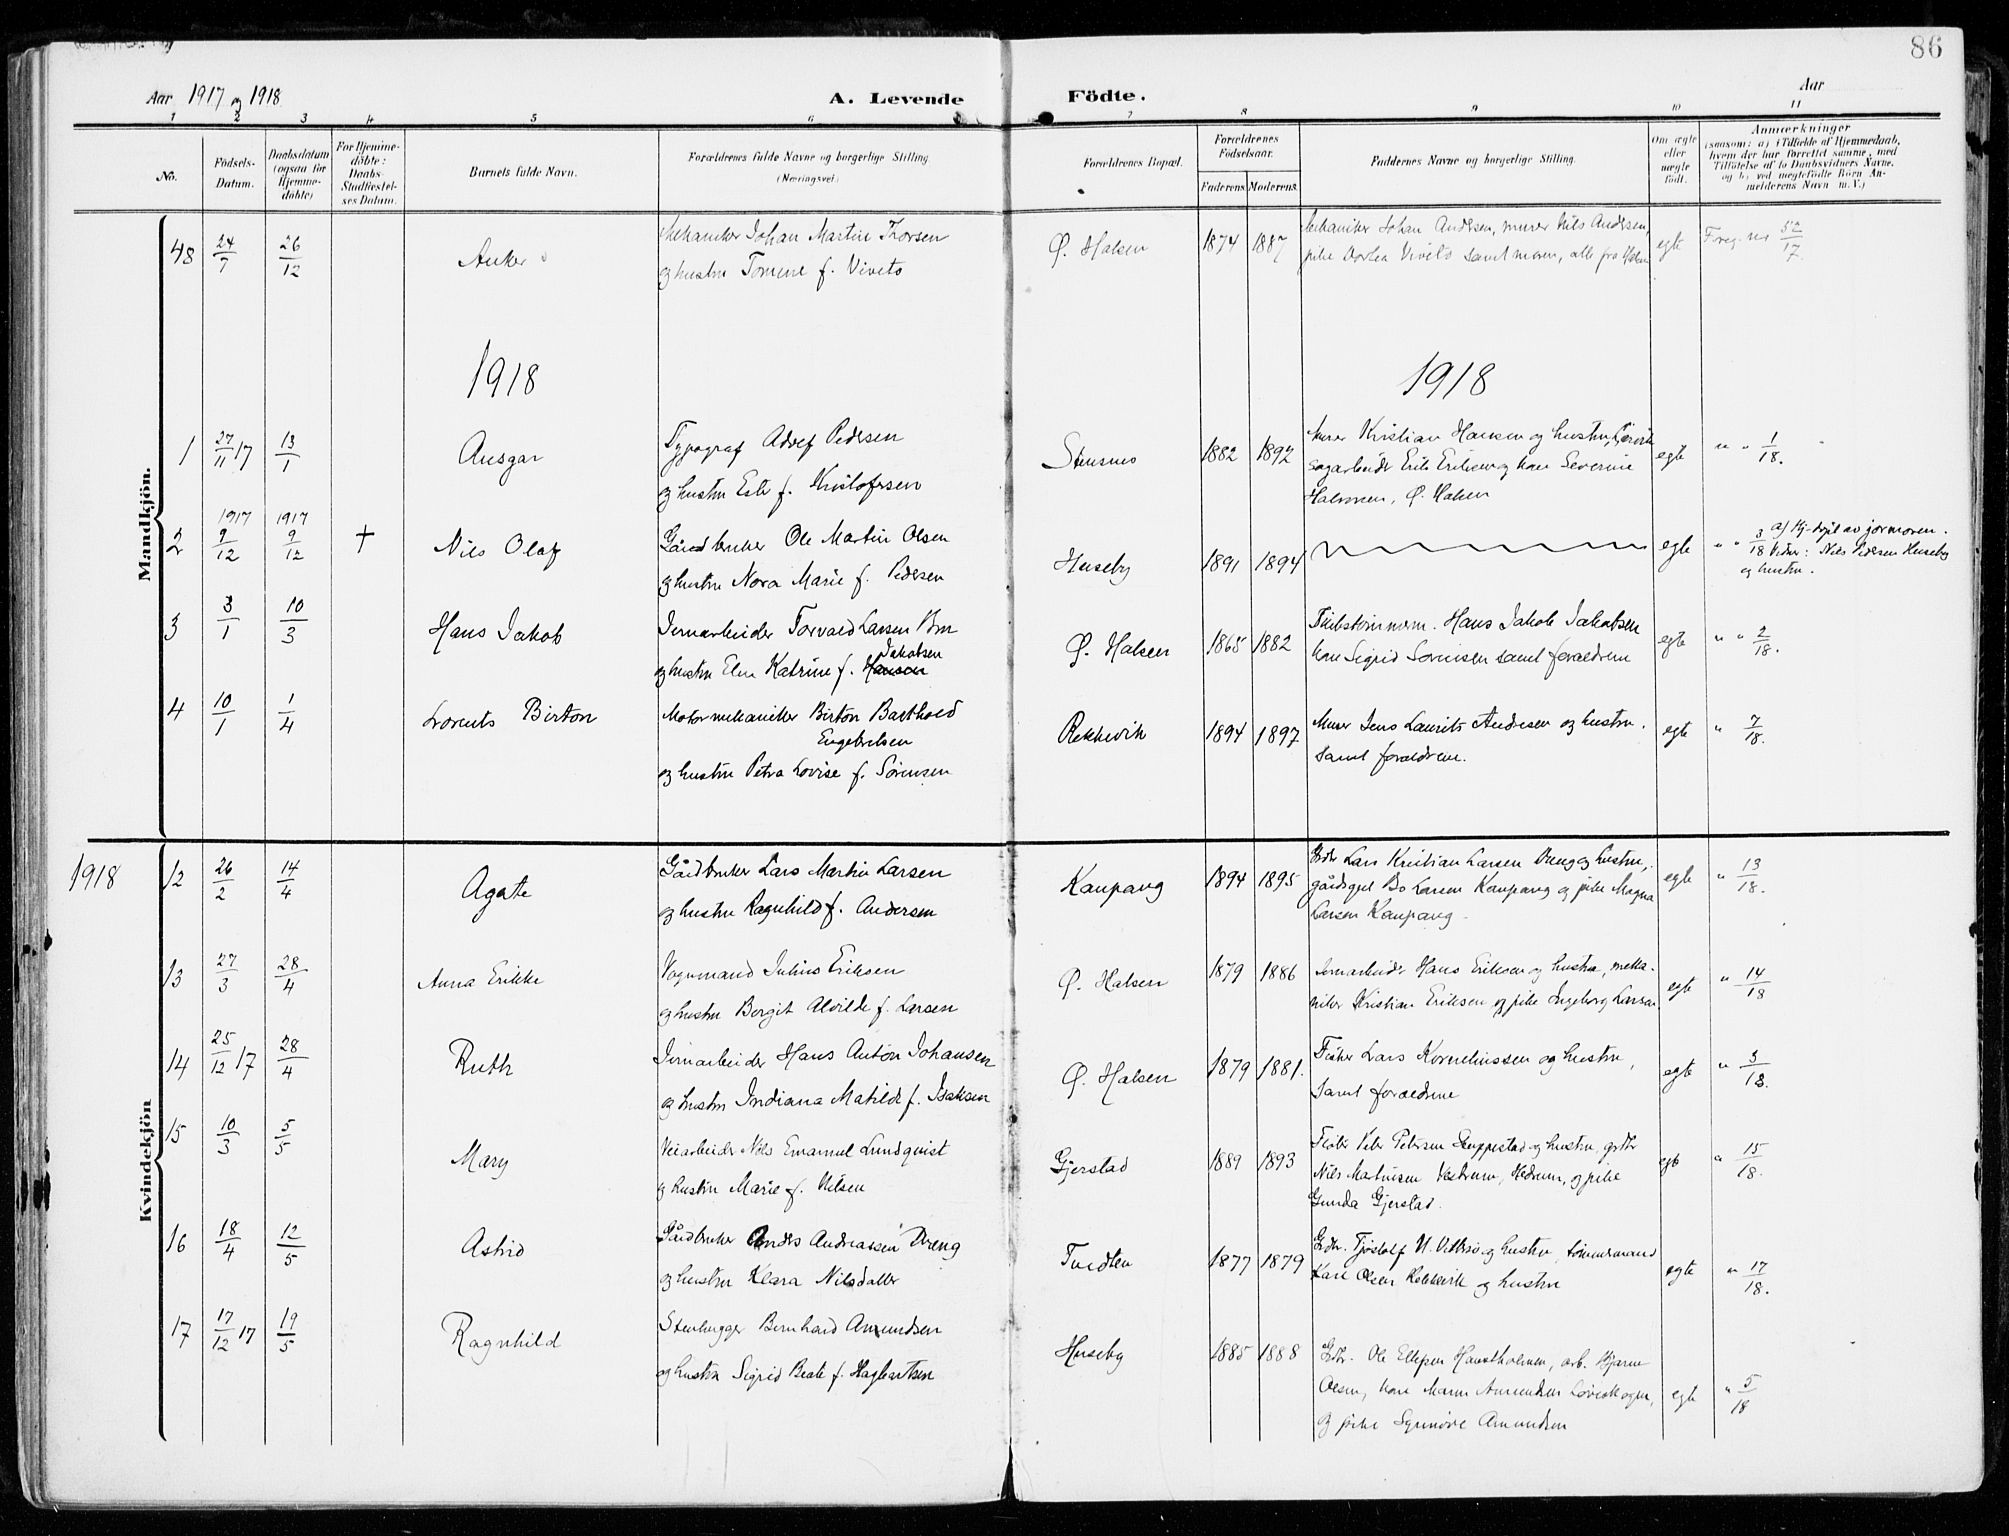 86
Aar 1917 og 1918
A. Levende
Födte.
Aar
1 2 3 4 5 6 7 8 9 10 11
No.
Födsels-
Datum.
Daabsdatum
(ogsaa for
Hjemme-
döbte)
For Hjemme-
döbte:
Daabs-
Stadfæstel-
ses Datum.
Barnets fulde Navn.
Forældrenes fulde Navne og borgerlige Stilling
(Næringsvei.)
Forældrenes Bopæl.
Forældrenes
Födselsaar.
Faderens. Moderens.
Faddernes Navne og borgerlige Stilling.
Om ægte
eller
uægte
født.
Anmærkninger
(saasom: a) i Tilfælde af Hjemmedaab,
hvem der har forrettet samme, med
Tilföielse af to Daabsvidners Navne.
og b) ved uegtefödte Börn An-
melderens Navn m. V.)
Mandkjön.
48 24/7 26/12 Anker
Mekaniker Johan Martin Thorsen
og hustru Tomine f. Viveto
Ø. Halsen 1874 1887
Mekaniker Johan Andersen, murer Nils Andersen,
pike Dortea Vivelo samt moren, alle fra Halsen
egte Foreg. nr 52/17.
1918
1918
1 27/11 17 13/1 Ansgar
Typograf Adolf Pedersen
og hustru Ester f. Kristofersen
Stensnes 1882 1892
Murer Kristian Hansen og hustru,
sagarbeider Erik Eriksen og kone Severine
Halvorsen, Ø. Halsen
egte " " 1/18.
2 1917 9/12 1917 9/12 † Nils Olaf
Gårdbruker Ole Martin Olsen
og hustru Nora Marie f. Pedersen
Huseby 1891 1894
egte " " 3/18 a) Hj-døpt av jormoren.
Vidner: Nils Pedersen Huseby
og hustru.
3 3/1 10/3 Hans Jakob
Jernarbeider Torvald Larsen Bru
Jakobsen
og hustru Elen Katrine f. Hansen
Ø. Halsen 1865 1882
Skibstømmerm. Hans Jakob Jakobsen
kone Sigrid Sørensen samt forældrene
egte " " 2/18.
4 10/1 1/4 Lorents Birton
Motormekaniker Birton Barthold
Engebretsen
og hustru Petra Lovise f. Sørensen
Rekkevik 1894 1897
Murer Jens Laurits Andresen og hustru.
samt forældrene.
egte " 7/18.
1918
Kvindekjön
12 26/2 14/4 Agate
Gårdbruker Lars Martin Larsen
og hustru Ragnhild f. Andersen
Kaupang 1894 1895
Grdbr Lars Kristian Larsen Dreng og hustru,
gårdsgut Bo Larsen Kaupang og pike Magna
Larsen Kaupang.
egte " 13/18.
13 27/3 28/4 Anna Erikke
Vognmand Julius Eriksen
og hustru Borgit Alvilde f. Larsen
Ø. Halsen 1879 1886
Jernarbeider Hans Eriksen og hustru, meka-
niker Kristian Eriksen og pike Ingeborg Larsen
egte " 14/18
14 25/12 17 28/4 Ruth
Jernarbeider Hans Anton Johansen
og hustru Indiana Matilde f. Isaksen
Ø. Halsen 1879 1881.
Fisker Lars Korneliussen og hustru,
samt forældrene
egte " 3/18.
15 10/3 5/5 Mary
Veiarbeider Nils Emanuel Lundquist
og hustru Marie f. Nilsen
Gjerstad 1889 1893
Fløter Peter Petersen Skuppestad og hustru, grdbr
Nils Martinsen Vestrum, Hedrum, og pike
Gunda Gjerstad.
egte " 15/18.
16 18/4 12/5 Astrid
Gårdbruker Anders Andreassen Dreng
og hustru Klara Nilsdatter
Tvedten 1877 1879
Grdbr. Tjøstolf N. Vittersø og hustru, tømmermand
Karl Olsen Rekkevik og hustru
egte " 17/18.
17 17/12 17 19/5 Ragnhild
Stenhugger Bernhard Amundsen
og hustru Sigrid Beate f. Hagbartsen
Huseby 1885 1888
Grdbr. Ole Ellefsen Havstholmen, arb. Bjarne
Olsen, kone Maren Amundsen Løveskogen,
og pike Synnøve Amundsen
egte " 5/18